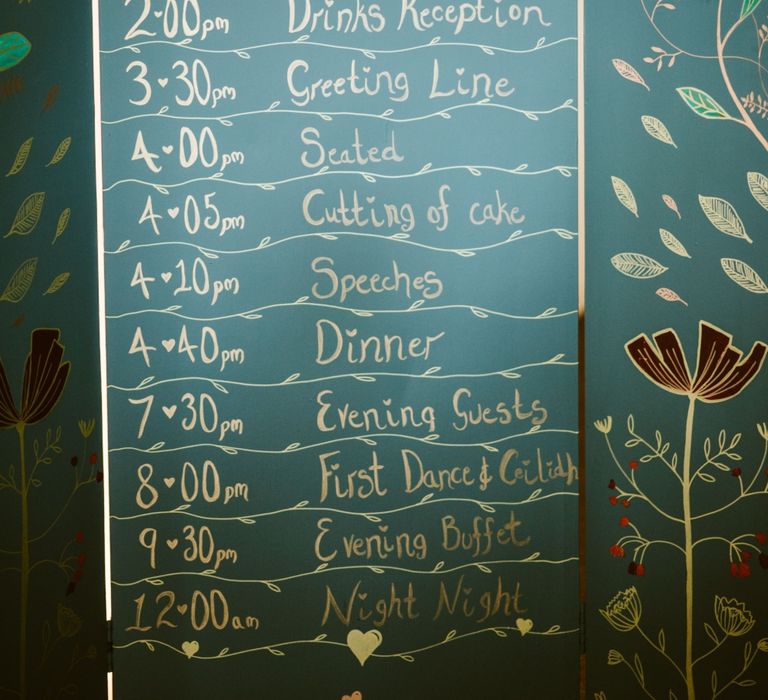 2:00pm Drinks Reception
3:30pm Greeting Line
4:00pm Seated
4:05pm Cutting of cake
4:10pm Speeches
4:40pm Dinner
7:30pm Evening Guests
8:00pm First Dance & Ceilidh
9:30pm Evening Buffet
12:00am Night Night